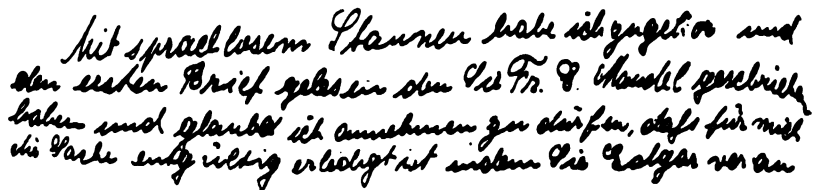 Mit sprachlosem Staunen habe ich zugehör und
den ersten Brief gelesen den Sie Fr. P. Mandel geschrieben
haben und glaubd ich annehmen zu dürfen, daſs für mich
die Sache entgültig erledigt ist indem Sie Edgar ver an